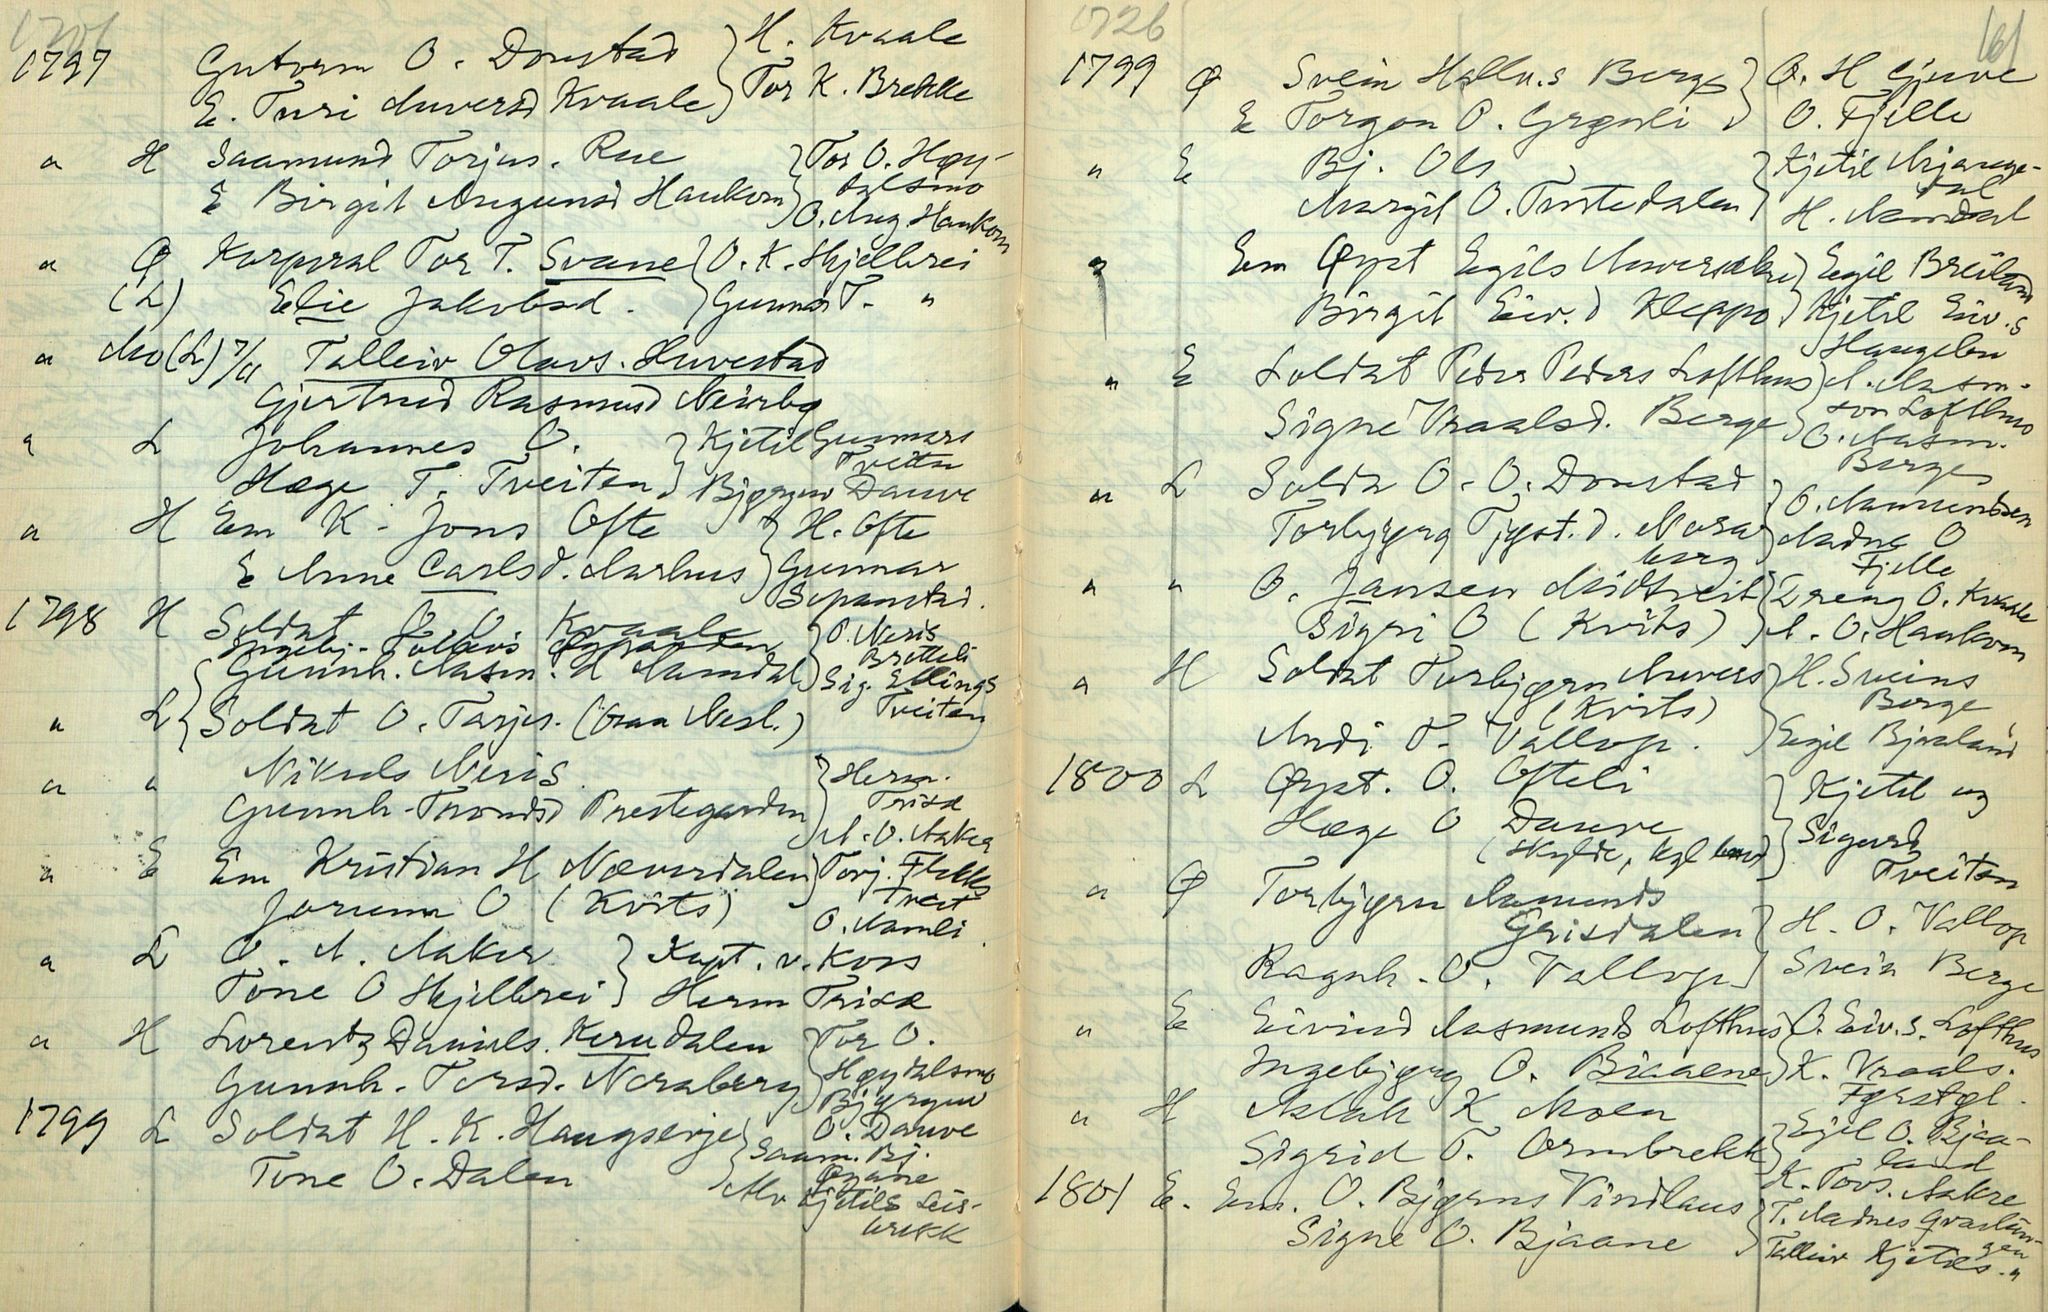 1797 Gutorm O. Donstad } H. Kvaale
E. Turi Auversd Kvaale } Tor K. Brekke
" H Saamund Torjus. Rue } Tor O. Høy-
dalsmo
E Birgit Augunsd Haukom } O. Aug. Haukom
" Ø Korporal Tor T. Svane } O. K. Hjellbrei
(L) Elie Jakobsd. } Gunnar T. "
" Mo (L) 7/11 Talleiv Olavs. Huvestad
Gjertrud Rasmusd Neirbø
" L Johannes O. } Kjetil Gunnars
Tveiten
Hæge T. Tveiten } Bjørgur Dauve
" H Em K. Jons Ofte } H. Ofte
E Anne Carlsd. Aarhus } Gunnar
1798 H Soldat O O Kvaale } O. Neris
Bretteli
Gunnh. Aasm. d Aamdal } Sig. Ellings
Tveiten
" L { Soldat O. Tarjes. (
" " Nikuls Neris } Herm.
Trisæ
Gunnh. Trondsd Prestegarden } A. O. Aaker
" E Em Kristian H Næverdalen } Torj. Flekke
tveit
Jorunn O (Kvits) O. Namli.
" L O. A. Aaker } Kapt. v. Koss
Tone O Hjellbrei } Herm Trisæ
" H Lorentz Daniels. Kerudalen } Tor O.
Høydalsmo
Gunnh. Torsd. Noraberg } Bjørgur
O. Dauve
1799 L Soldat H. K. Haugserje } Saam. Bj.
Øgane
Tone O. Dalen } Alv Kjetils Leis-
brekk
1726 61
1799 Ø Svein Hallv.s Berge } O. H Gjuve
E Torgon O. Grgvli } O. Fjelle
" E Bj. Ols } Kjetil Mjauge-
dal
Margit O. Trytedalen } H. Aamdal
" Em Øyst Egils Auversakre } Egil Breiland
Birgit Eiv.d Kleppo } Kjetil Eiv.s
Haugelin
" E Soldat Peder Peders Lofthus } A. Aasm.
son Lofthus
Signe Vraalsd. Berge } O. Aasm.
Berge
" L Soldat O. O. Donstad } O. Aamundsen
Torbjørg Tjøst.d. Nora } Aadne O
berg Fjelle
" " O. Jansen Midtveit } Dreng O. Kvaale
Sigri O (Kvits) } A. O. Haukom
" H Soldat Torbjørn Auvers } H. Sveins
(Kvits) Berge
Andi T. Vallop. } Egil Bjaaland
1800 L Øyst. O. Ofteli } Kjetil og
Hæge O Dauve } Sigurd
Tveiten
" Ø Torbjørn Aamunds
Grisdalen } H. O. Vallop
Ragnh. O. Vallop } Svein Berge
" E Eivind Aasmunds Lofthus } O. Eiv.s. Lofthus
Ingebjørg O. Biaaene } K. Vraals.
Førstøl.
" H Aslak K Moen } Egil O. Bjaa-
land
Sigrid T. Ormbrekk } K. Tovs. Aakre
1801 E. Em. O. Bjørns Vindlaus } T. Aadnes Gravlin-
gen
Signe O. Bjaane } Talleiv Kjetils. "